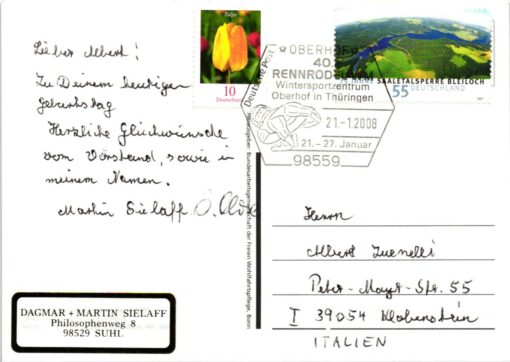 Lieber Albert!
Zu Deinem heutigen
Geburtstag
Herzliche Glückwünsche
vom Vorstand, sowie in
meinem Namen.
Martin Sielaff
DAGMAR + MARTIN SIELAFF
Philosophenweg 8
98529 SUHL
Tulpe
10
Deutschland
Deutsche Post
OBERHOF
40.
Wintersportzentrum
Oberhof in Thüringen
21.-1.2008
21. - 27. Januar
98559
SAALETALSPERRE BLEILOCH
55 DEUTSCHLAND
Herausgeber: Bundesarbeitsgemeinschaft der Freien Wohlfahrtspflege, Bonn
Herrn
Albert
Peter-Mayr-Str. 55
I 39054 Klobenstein
ITALIEN